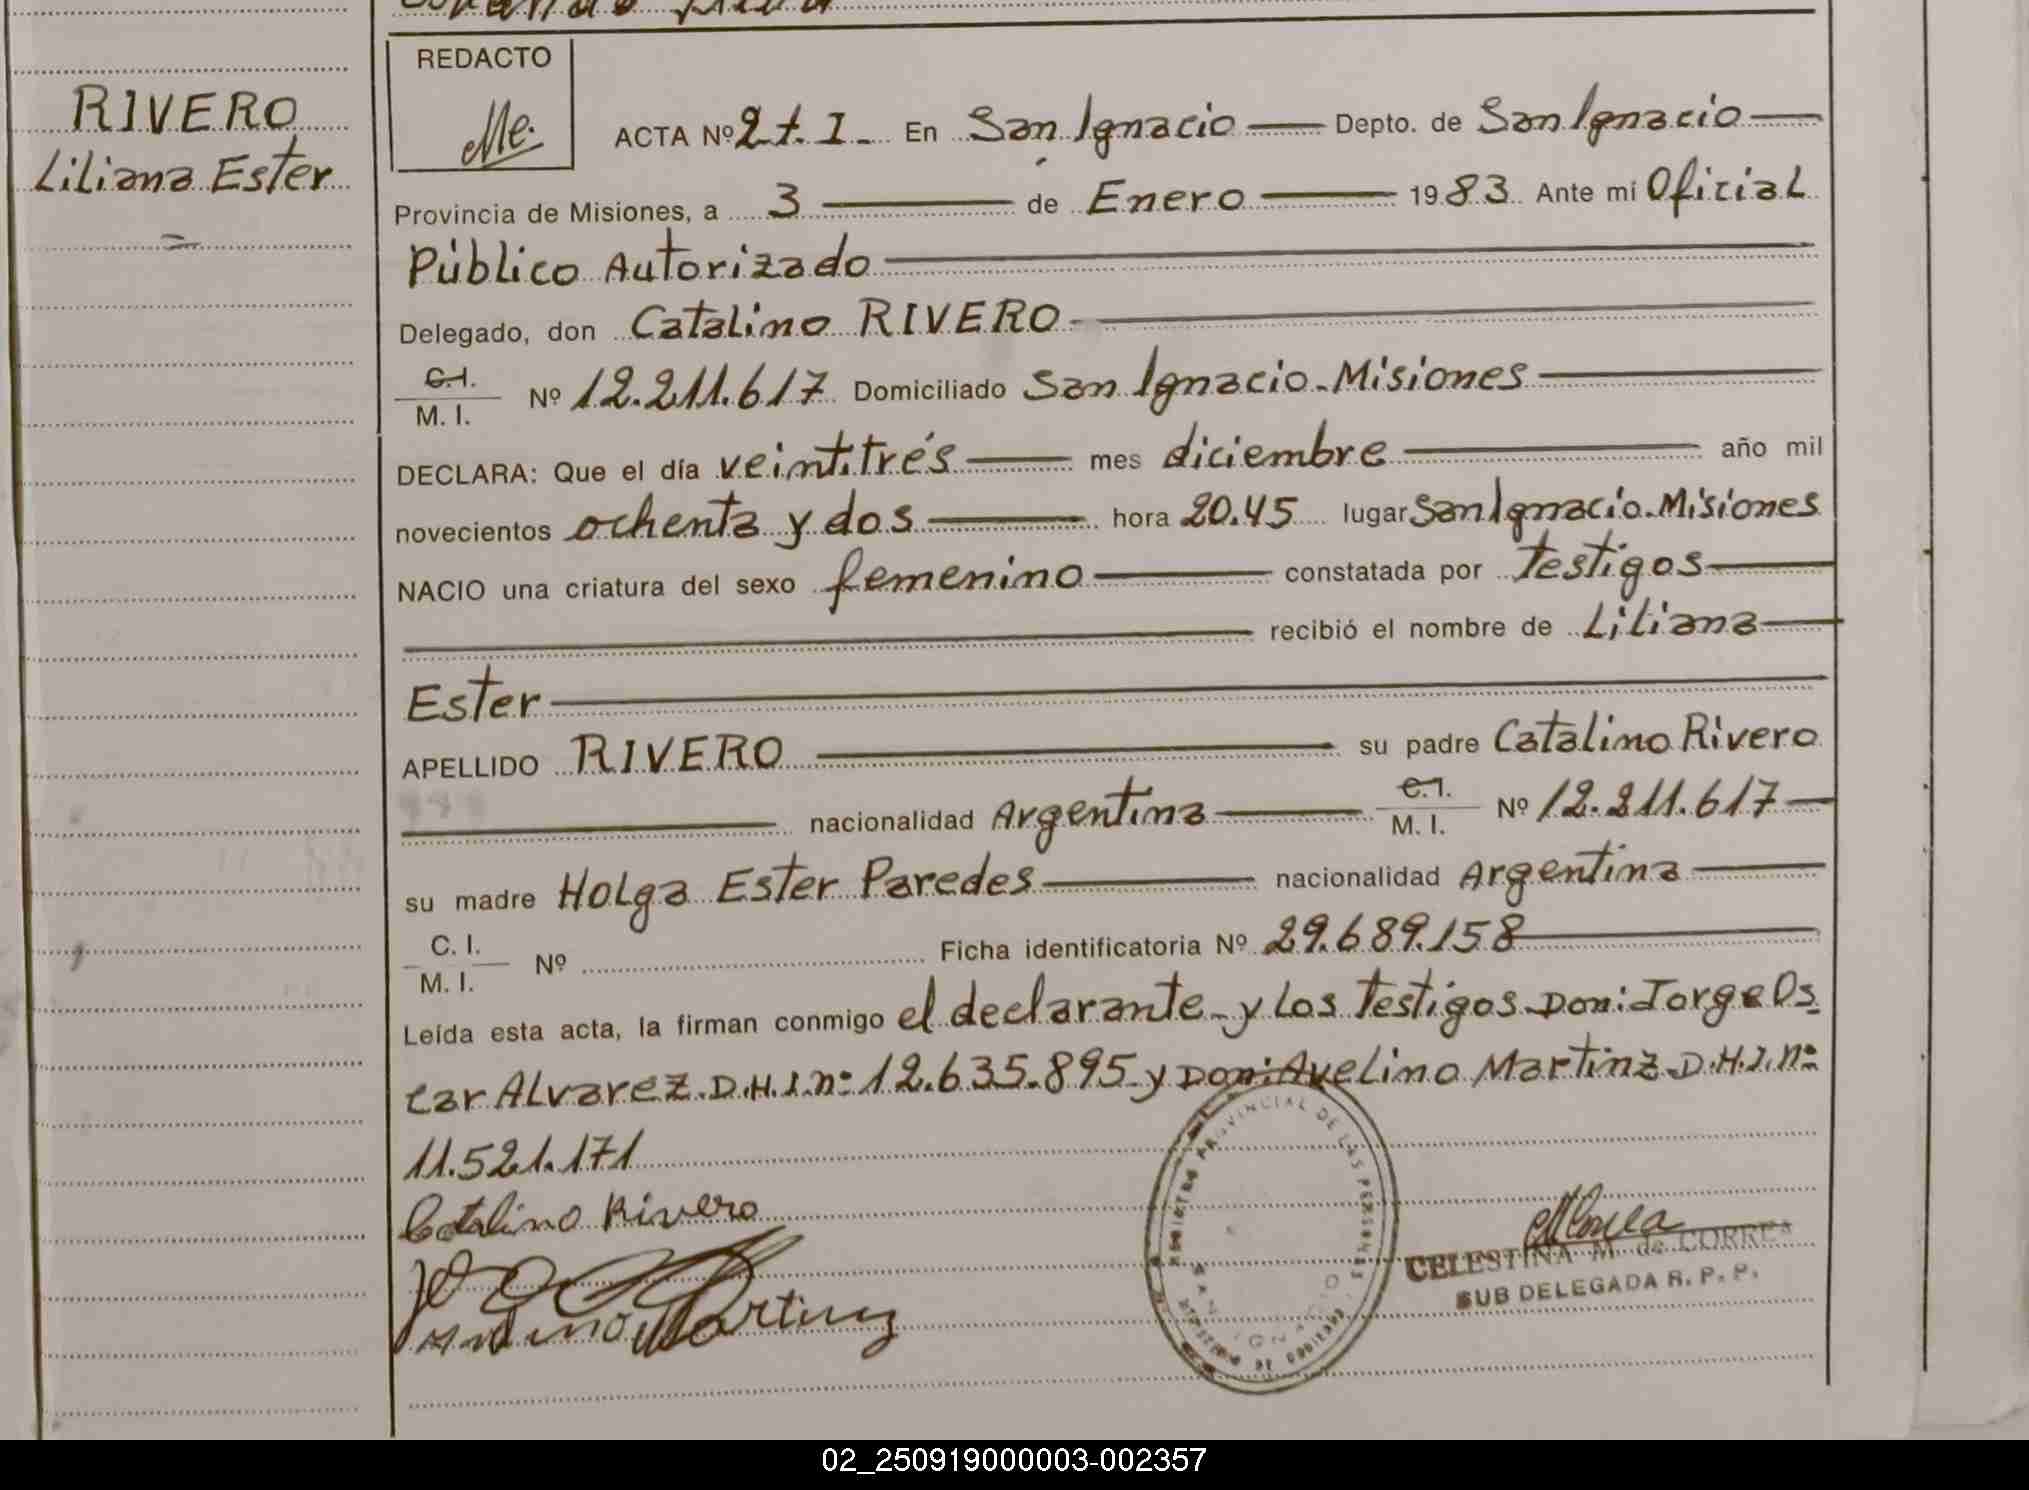 RIVERO
Liliana Ester
REDACTO
Me.
ACTA Nº 2.t.I. En San Ignacio Depto. de San Ignacio
Provincia de Misiones, a 3 de Enero 1983 Ante mi Oficial
Público Autorizado
Delegado, don Catalino RIVERO
C.I.
M. I. Nº 12.211.617 Domiciliado San Ignacio-Misiones
DECLARA: Que el día veintitrés mes diciembre año mil
novecientos ochenta y dos hora 20.45 lugar San Ignacio-Misiones
NACIO una criatura del sexo femenino constatada por Testigos
recibió el nombre de Liliana
Ester
APELLIDO RIVERO su padre Catalino Rivero
nacionalidad Argentina C.I. M. I. Nº 12.211.617
su madre Holga Ester Paredes nacionalidad Argentina
C. I.
M. I. Nº Ficha identificatoria Nº 29.689.158
Leída esta acta, la firman conmigo el declarante-y Los Testigos-Don:Jorge Os
car Alvarez.D.H.I.nº 12.635.895-y Don:Avelino Martinz-D.H.I.nº
11.521.171
Catalino Rivero
Martinez
REGISTRO PROVINCIAL DE LAS PERSONAS
SAN IGNACIO
MINISTERIO DE GOBIERNO
CELESTINA M. de CORREA
SUB DELEGADA R. P. P.
02_250919000003-002357